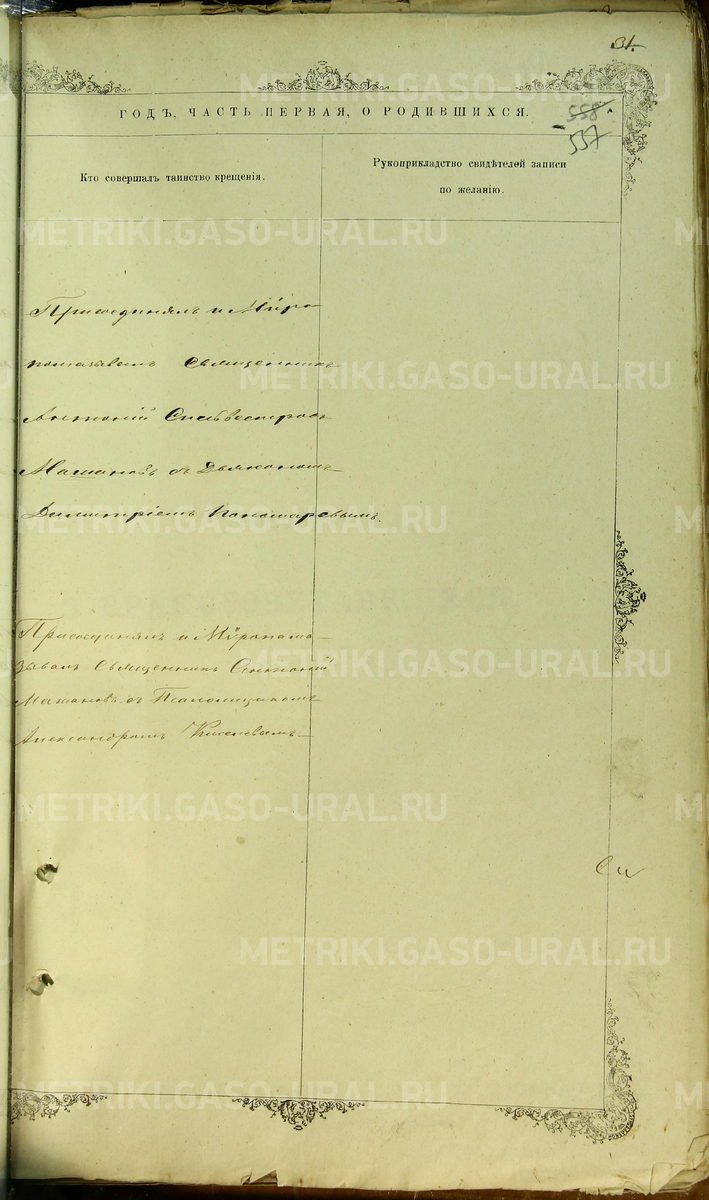 31.
ГОДЪ, ЧАСТЬ ПЕРВАЯ, О РОДИВШИХСЯ.
558
557
Кто совершалъ таинство крещенія.
Рукоприкладство свидѣтелей записи
по желанію.
Присоединялъ и Мѵро
помазывалъ Священникъ
Антоній
Машановъ съ Дьякономъ
Димитріемъ Пономаревымъ.
Присоединялъ и Мѵропома-
зывалъ Священникъ Антоній
Машановъ съ Псаломщикомъ
Александромъ Киселевымъ.
METRIKI.GASO-URAL.RU